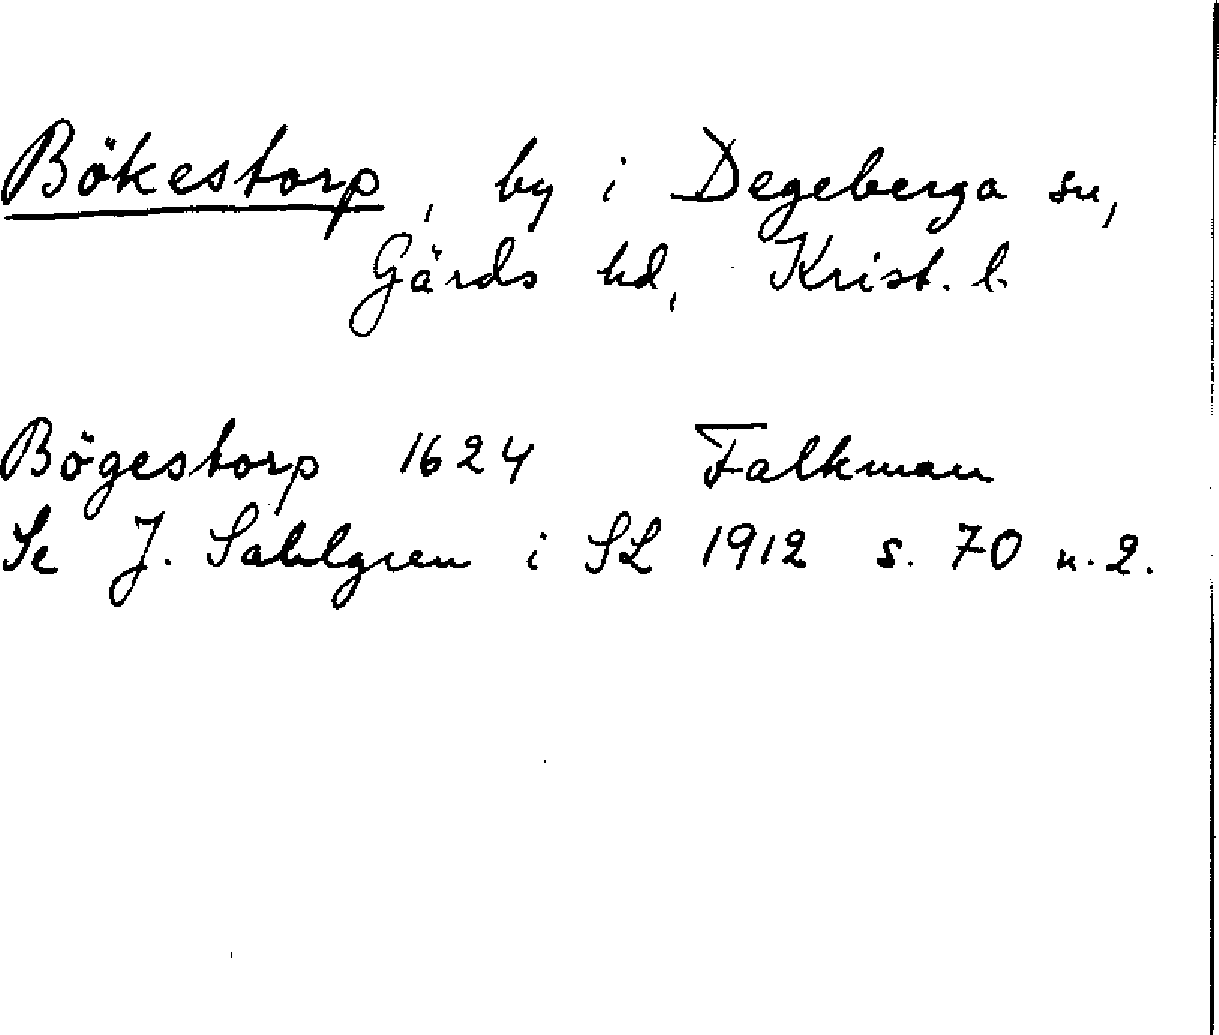 Bökestorp, by i Degeberga sn,
Gärds hd, Krist. l.
Bögestorp 1624 Falkman
Se J. Sahlgren i SL 1912 s. 70 n. 2.